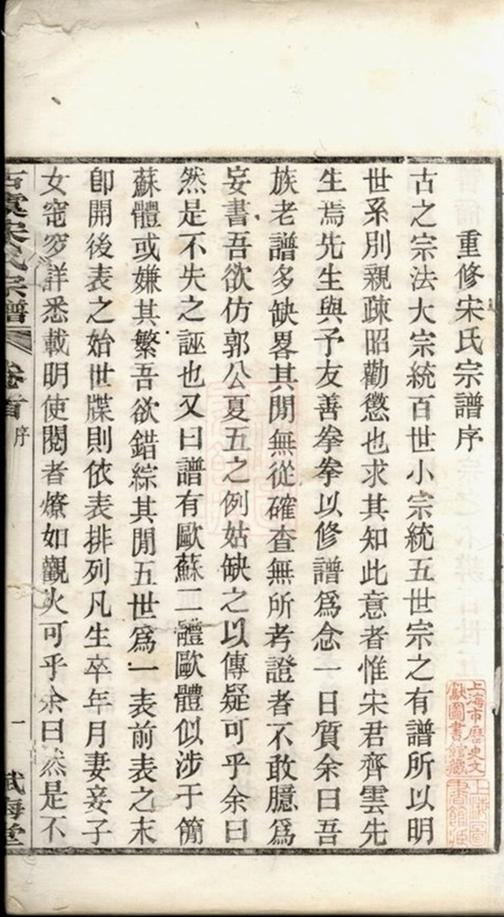 重修宋氏宗譜序
古之宗法大宗統百世小宗統五世宗之有譜所以明
世系別親疎昭勸懲也求其知此意者惟宋君齊雲先
生焉先生與予友善拳拳以修譜爲念一日質余曰吾
族老譜多缺畧其閒無從確查無所考證者不敢臆爲
妄書吾欲仿郭公夏五之例姑缺之以傳疑可乎余曰
然是不失之誣也又曰譜有歐蘇二體歐體似涉于簡
蘇體或嫌其繁吾欲錯綜其閒五世爲一表前表之末
卽開後表之始世牒則依表排列凡生卒年月妻妾子
女窀穸詳悉載明使閱者燎如觀火可乎余曰然是不
宋氏宗譜
卷首
序
一
海堂
上海市歷史文
獻圖書館藏